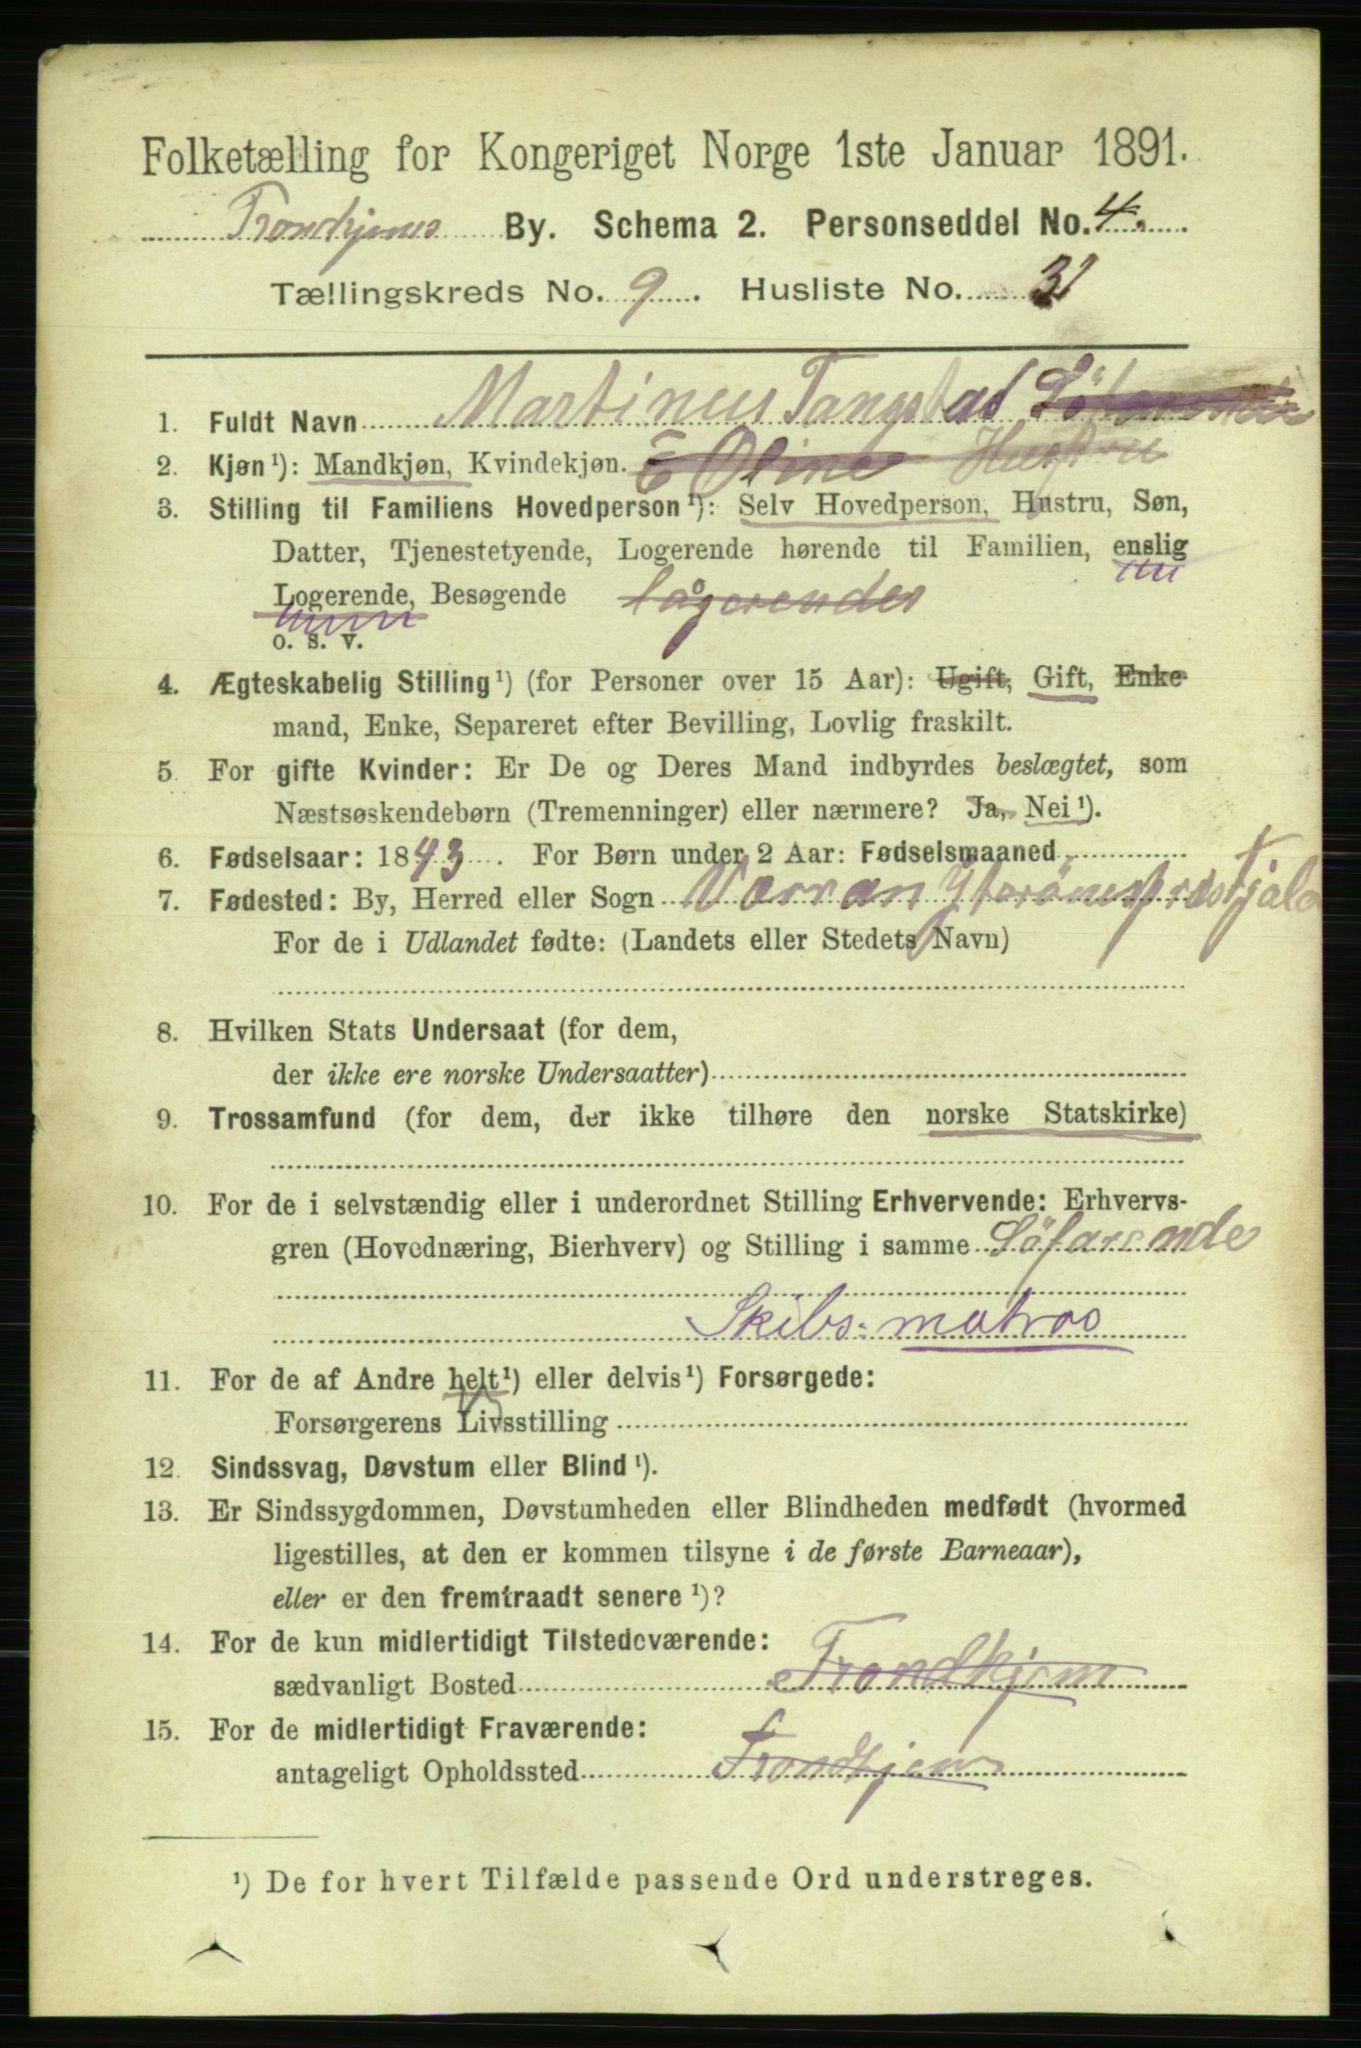 Folketælling for Kongeriget Norge 1ste Januar 1891.
Trondhjems By. Schema 2. Personseddel No. 4.
Tællingskreds No. 9. Husliste No. 31
1. Fuldt Navn Martinus Tangstad
2. Kjøn¹): Mandkjøn, Kvindekjøn. E Oline Hustru
3. Stilling til Familiens Hovedperson¹): Selv Hovedperson, Hustru, Søn,
Datter, Tjenestetyende, Logerende hørende til Familien, enslig
Logerende, Besøgende lågerendes
o. s. v.
4. Ægteskabelig Stilling¹) (for Personer over 15 Aar): Ugift, Gift, Enke-
mand, Enke, Separeret efter Bevilling, Lovlig fraskilt.
5. For gifte Kvinder: Er De og Deres Mand indbyrdes beslægtet, som
Næstsøskendebørn (Tremenninger) eller nærmere? Ja, Nei¹).
6. Fødselsaar: 1843. For Børn under 2 Aar: Fødselsmaaned
7. Fødested: By, Herred eller Sogn Værran Yterönes præstjæld
For de i Udlandet fødte: (Landets eller Stedets Navn)
8. Hvilken Stats Undersaat (for dem,
der ikke ere norske Undersaatter)
9. Trossamfund (for dem, der ikke tilhøre den norske Statskirke)
10. For de i selvstændig eller i underordnet Stilling Erhvervende: Erhvervs-
gren (Hovednæring, Bierhverv) og Stilling i samme Söfarende
Skibs-matros
11. For de af Andre helt¹) eller delvis¹) Forsørgede:
Forsørgerens Livsstilling
12. Sindssvag, Døvstum eller Blind¹).
13. Er Sindssygdommen, Døvstumheden eller Blindheden medfødt (hvormed
ligestilles, at den er kommen tilsyne i de første Barneaar),
eller er den fremtraadt senere¹)?
14. For de kun midlertidigt Tilstedeværende:
sædvanligt Bosted Trondhjem
15. For de midlertidigt Fraværende:
antageligt Opholdssted Trondhjem
¹) De for hvert Tilfælde passende Ord understreges.